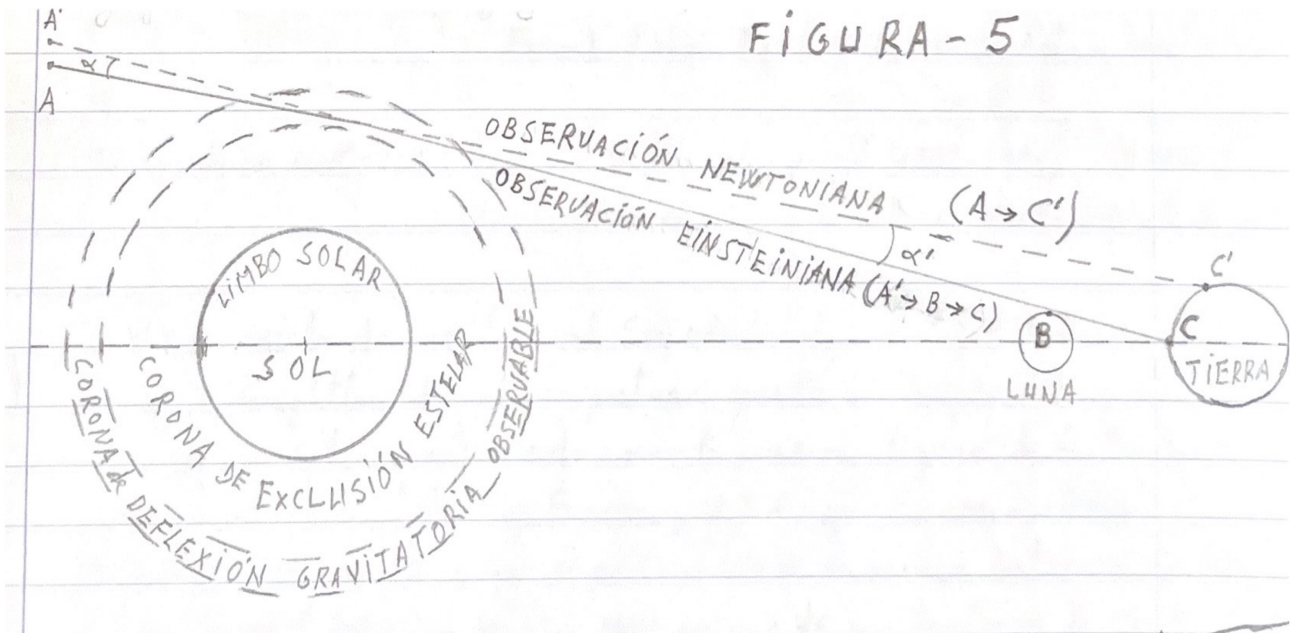 FIGURA - 5
A'
α
A
OBSERVACIÓN NEWTONIANA (A → C')
OBSERVACIÓN EINSTEINIANA (A' → B → C)
α'
C'
LIMBO SOLAR
SOL
B
LUNA
C
TIERRA
CORONA DE EXCLUSIÓN ESTELAR
CORONA de DEFLEXIÓN GRAVITATORIA OBSERVABLE